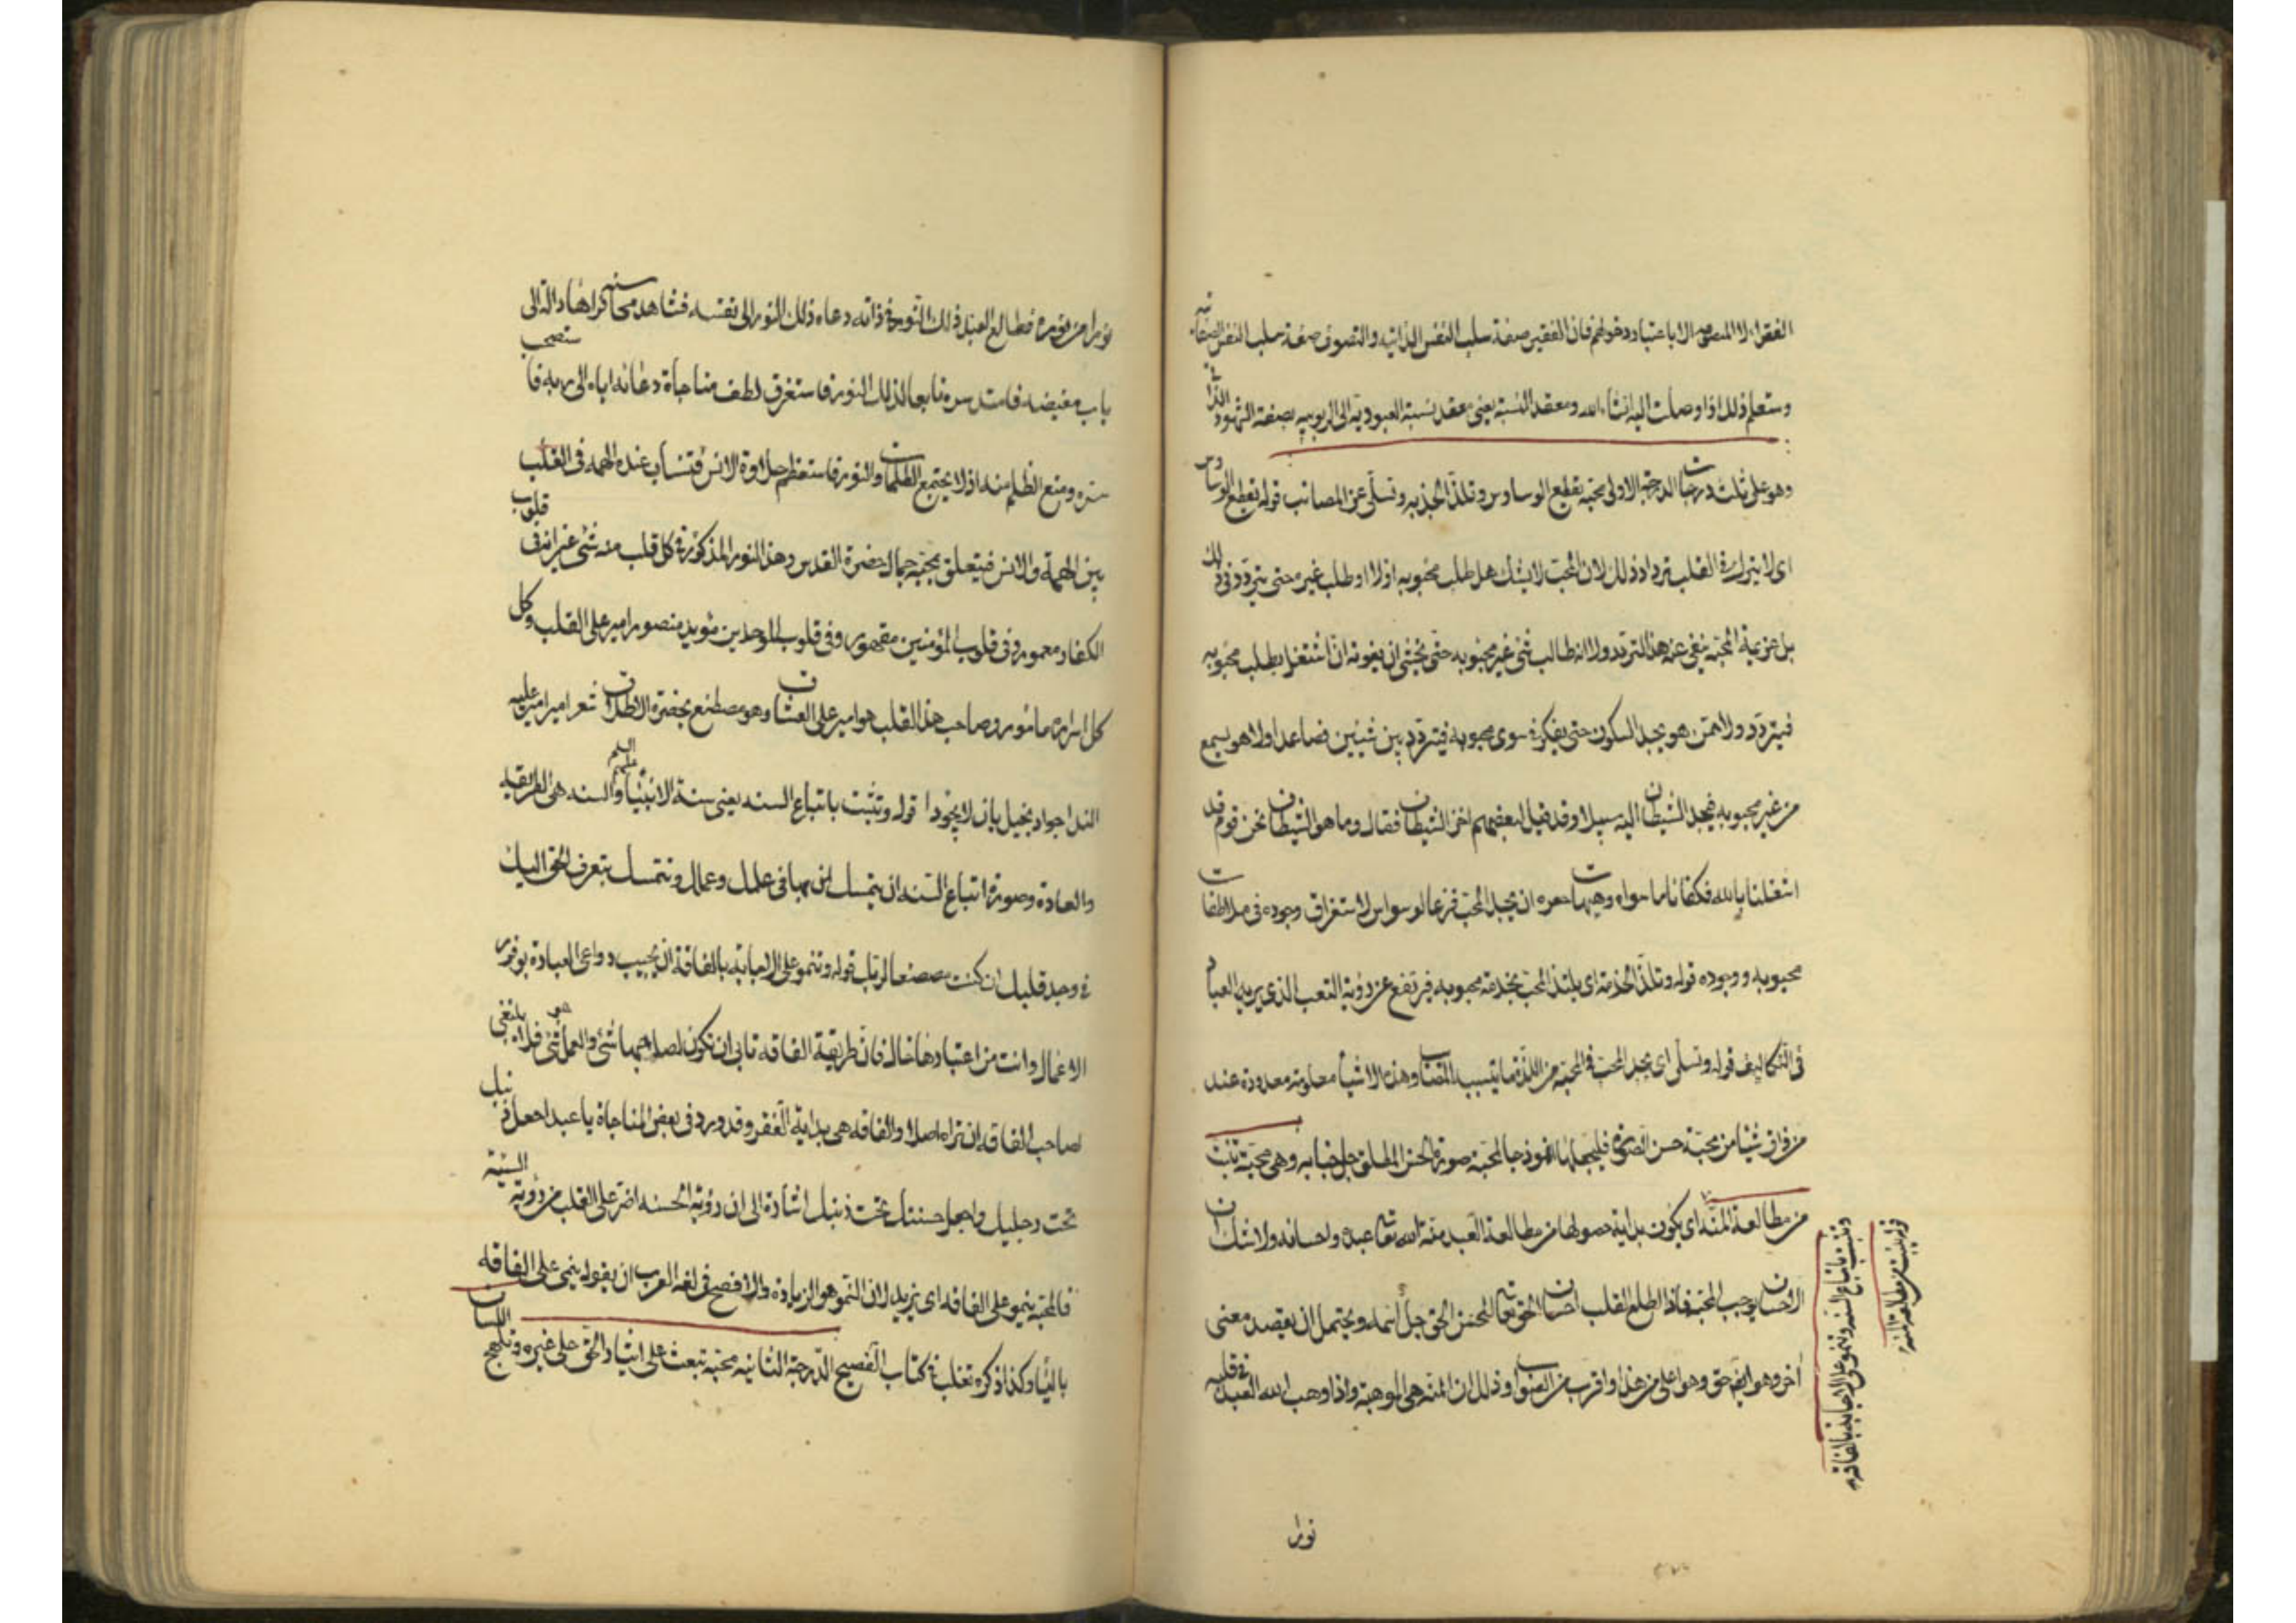 الفقراء لا المتصوفه الا باعتبار دخولهم فان الفقير صفة سلب النقس الذاتيه والتصوف صفة سلب النقس الصفاتيه
وستعلم ذلك اذا وصلت اليه انشاء الله ومعقد النسبة يعنى معقد نسبة العبودية الى الربوبيه بصفة الشهود الذاتى
وهو على ثلث درجات الدرجة الاولى محبة تقطع الوساوس وتلذ الخدمه وتسلى عن المصائب قوله تقطع الوساوس
اى لا يترك فى القلب تردادا وذلك لان المحب لا يشك هل طلب محبوبه اولا او طلب غيره حتى يتردد فى ذلك
بل عزيمة المحبة تنفى عنه هذا التردد ولا انه طالب شئ غير محبوبه حتى يخشى ان يفوته ان اشتغل بطلب محبوبه
فيتردد ولا ممن هو يجد السكون حتى يفكر فى سوى محبوبه فيتردد بين شيئين فصاعدا ولا هو يسمع
من غير محبوبه فيجد الشيطان اليه سبيلا وقد قيل لبعضهم اخز الشيطان فقال وما هو الشيطان نحن قوم قد
اشتغلنا بالله فكفانا ما سواه وهيهات ان يجد المحب فزعا لوسواس لاستغراق وجوده فى ملاطفات
محبوبه ووجوده قوله وتلذ الخدمة اى يلتذ المحب بخدمة محبوبه فيرتفع عن رؤية التعب الذى يريه العباد
فى التكاليف قوله وتسلى اى يجد المحب فى المحبة من اللذة ما ينسيه المصايب وهذه الاشيآ معلومة معدودة عند
من ذاق شيئا من محبة حسن الصورة فليجعلها انموذجا لمحبة صورة الحسن المطلق جل جنابه وهى محبة تنبت
من مطالعة المنه اى يكون بداية حصولها من مطالعة العبد منة الله تعالى عبده واحسانه ولا شك ان
الاحسان يوجب المحبة فاذا اطلع القلب احسان الحق تعالى احب المحسن الحق جل اسمه ويحتمل ان يقصد معنى
آخر وهو ايضا حق وهو اعلى من هذا واقرب من الصواب وذلك ان المنه هى الموهبة واذا وهب الله العبد فى قلبه
قوله تنبت من مطالعة المنه
وتثبت باتباع السنه وتنمو على الاجابة بالفاقه
نورا
نورا من نوره فطالع العبد ذلك النور فى ذاته دعاه ذلك النور الى نفسه فشاهد محاسنه فراها دالة الى
باب مفيضه فامتد سره تابعا لذلك النور فاستغرق لطف مناجاة دعائه اياه الى ربه فاستصحب
سره ومنع الظلم منه اذ لا يجتمع الظلمات والنور فاستعظم حلاوة الانس فتنشأ عنده الهمه فى القلب
بين الهمة والانس فيتعلق بمحبة جمال حضرة القدس وهذا النور المذكور فى كل قلب منه شئ غير انه فى قلوب
الكفار مغمور وفى قلوب المؤمنين مقهور وفى قلوب الموحدين مؤيد منصور امير على القلب وكل
كل اسراره مأمور وصاحب هذا القلب هو امير على العشاق وهو مصطنع بحضرة الاطلاق شعر امير امير عليه
الندا جواد بخيل بان لا يجودا قوله وتثبت باتباع السنه يعنى سنة الانبيآ عليهم السلم والسنه هى الطريقه
والعادة وصورة اتباع السنه ان يتمسك بها فى علمك وعملك وتتمسك بتعرف الحق اليك
فى وجد قلبك ان كنت مصطنعا لربك قوله وتنمو على الاجابة بالفاقة ان يجيب دواعى العبادة بوفور
الاعمال وانت من اعتبارها خال فان طريقة الفاقه تابى ان تكون لصاحبها شئ والعمل هو شئ فلا ينبغى
لصاحب الفاقه ان تراه اصلا والفاقه هى بداية الفقر وقد ورد فى بعض المناجاة يا عبد اجعل ذنبك
تحت رجليك واجعل حسنتك تحت ذنبك اشارة الى ان رؤية الحسنه اضر على القلب من رؤية السيئة
فالمحبة ينمو على الفاقه اى يزيد لان النمو هو الزيادة والافصح فى لغة العرب ان يقول ينمى على الفاقه
باليآ وكذا ذكره ثعلب فى كتاب الفصيح الدرجة الثانيه محبة تبعث على ايثار الحق على غيره وتلهج اللسان